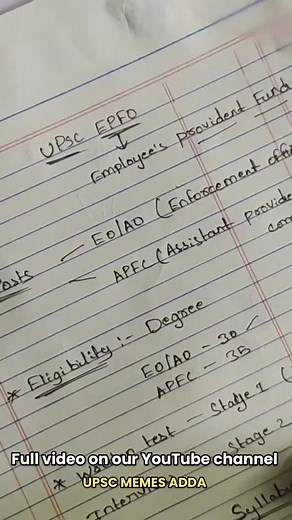 UPSC EPFO
Employee's provident Fund
EO/AO (Enforcement
Posts
APFC (Assistant provide
* Eligibility :- Degree
EO/AO - 30
APFC - 35
* test - Stage 1 (
Stage 2
Full video on our YouTube channel
UPSC MEMES ADDA